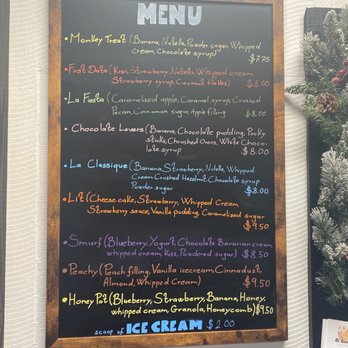 MENU
• Monkey Treat (Banana, Nutella, Powder sugar, Whipped
Cream, Chocolate syrup) $7.95
• First Date (Kiwi, Strawberry, Nutella, Whipped cream
Strawberry syrup, Coconut flakes) $8.00
• La Fiesta (Caramelized apple, Caramel syrup, Crushed
Pecan, Cinnamon sugar, apple filling $8.00
• Chocolate Lovers (Banana, Chocolate pudding, Pocky
stick, Crushed Oreos, White Choco-
late syrup $8.00
• La Classique (Banana, Strawberry, Nutella, Whipped
Cream, Crushed Hazelnut, Chocolate syrup
Powder sugar $8.00
• Lit (Cheese cake, Strawberry, Whipped Cream,
Strawberry sauce, Vanilla pudding, Caramelized sugar
$9.50
• Smurf (Blueberry, Yogurt, Chocolate Bavarian cream
whipped cream, Kiss, Powdered sugar) $8.50
• Peachy (Peach filling, Vanilla icecream, Cinnadust,
Almond, Whipped Cream) $9.50
• Honey Pot (Blueberry, Strawberry, Banana, Honey,
whipped cream, Granola, Honeycomb) $9.50
scoop of ICE CREAM $2.00